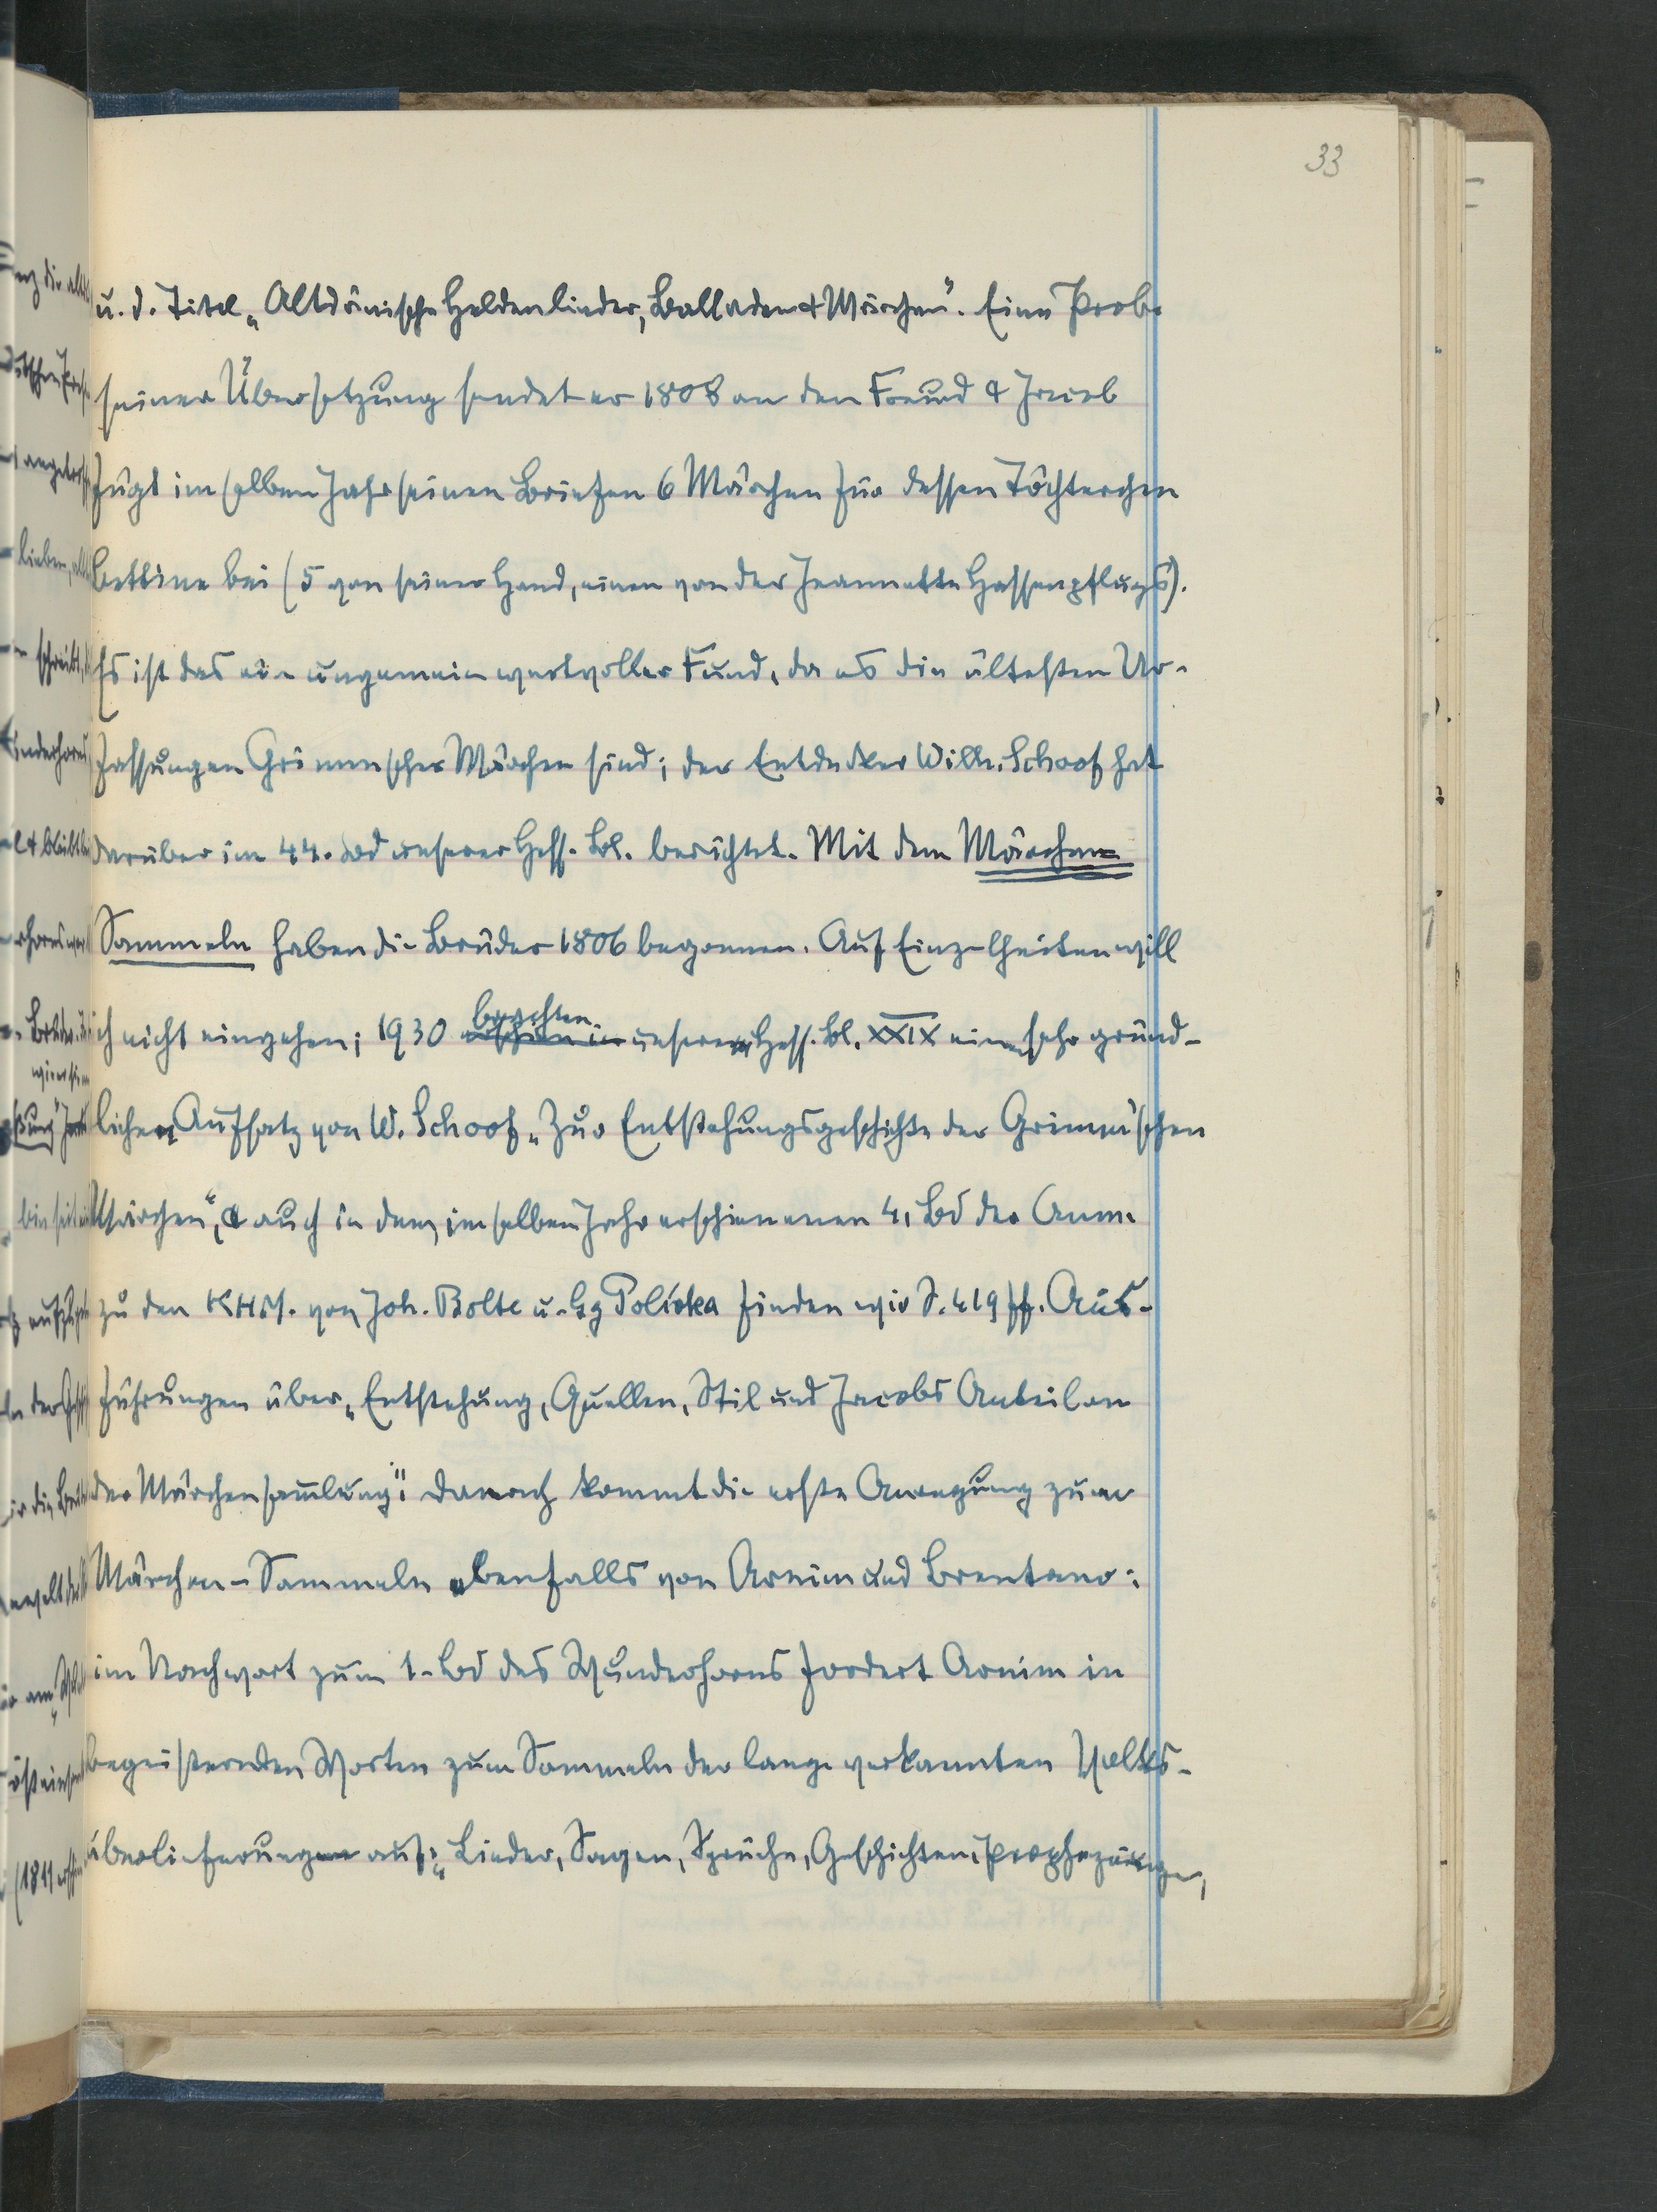 33
u. d. Titel „Altdänische Heldenlieder, Balladen & Märchen". Eine Probe
seiner Übersetzung sendet er 1808 an den Freund & Jacob
fügt im selben Jahr seinen Briefen 6 Märchen für dessen Töchterchen
Bettine bei (5 von seiner Hand, einen von der Jeannette Hassenpflugs).
Es ist das ein ungemein wertvoller Fund, da es die ältesten Ur-
fassungen Grimmscher Märchen sind; der Entdecker Wilh. Schoof hat
darüber im 44. Bd unserer Hess. Bl. berichtet. Mit dem Märchen-
Sammeln haben die Brüder 1806 begonnen. Auf Einzelheiten will
brachten
ich nicht eingehen; 1930 erschien in unsere Hess. Bl. XXIX einen sehr gründ-
lichen Aufsatz von W. Schoof „Zur Entstehungsgeschichte der Grimm'schen
Märchen", & auch in dem, im selben Jahr erschienenen 4. Bd der Anm.
zu den KHM. von Joh. Bolte u. Gg Polívka finden wir S. 419 ff. Aus-
führungen über „Entstehung, Quellen, Stil und Jacobs Anteil an
der Märchensammlung": Danach kommt die erste Anregung zum
Märchen-Sammeln ebenfalls von Arnim und Brentano:
im Nachwort zum 1. Bd des Wunderhorns fordert Arnim in
begeisternden Worten zum Sammeln der lange verkannten Volks-
überlieferungen auf: „Lieder, Sagen, Sprüche, Geschichten, Prophezeiungen,